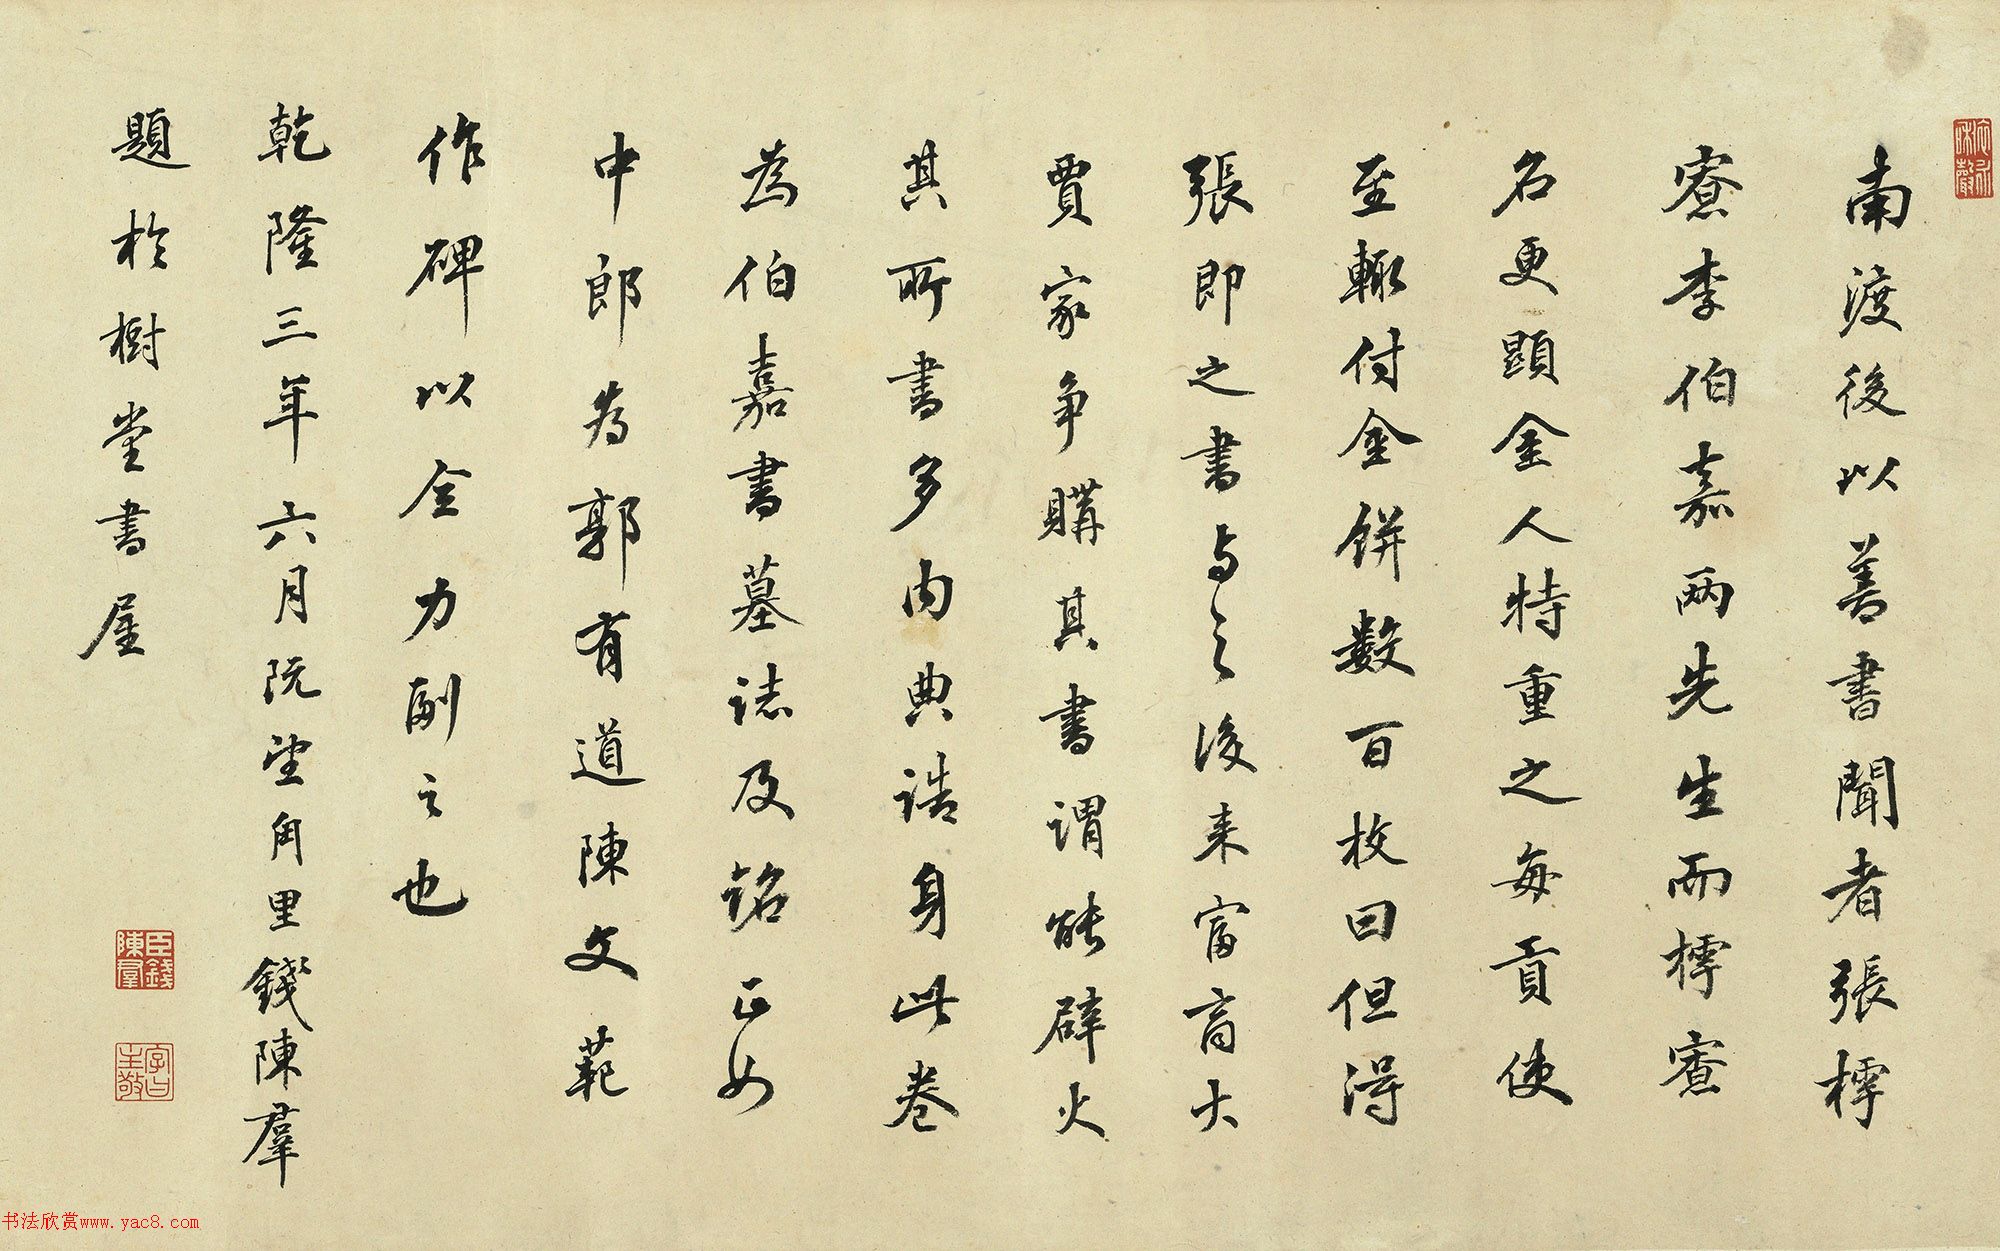 南渡後以善書聞者張樗
寮李伯嘉两先生而樗寮
名更顕金人特重之每貢使
至輙付金餅數百枚曰但得
張即之書与之後来富商大
賈家争購其書謂能辟火
其所書多内典誥身此卷
為伯嘉書墓誌及銘正如
中郎為郭有道陳文範
作碑以全力副之也
乾隆三年六月既望甪里錢陳羣
題於樹堂書屋
臣錢
陳羣
字曰
主敬
书法欣赏www.yac8.com